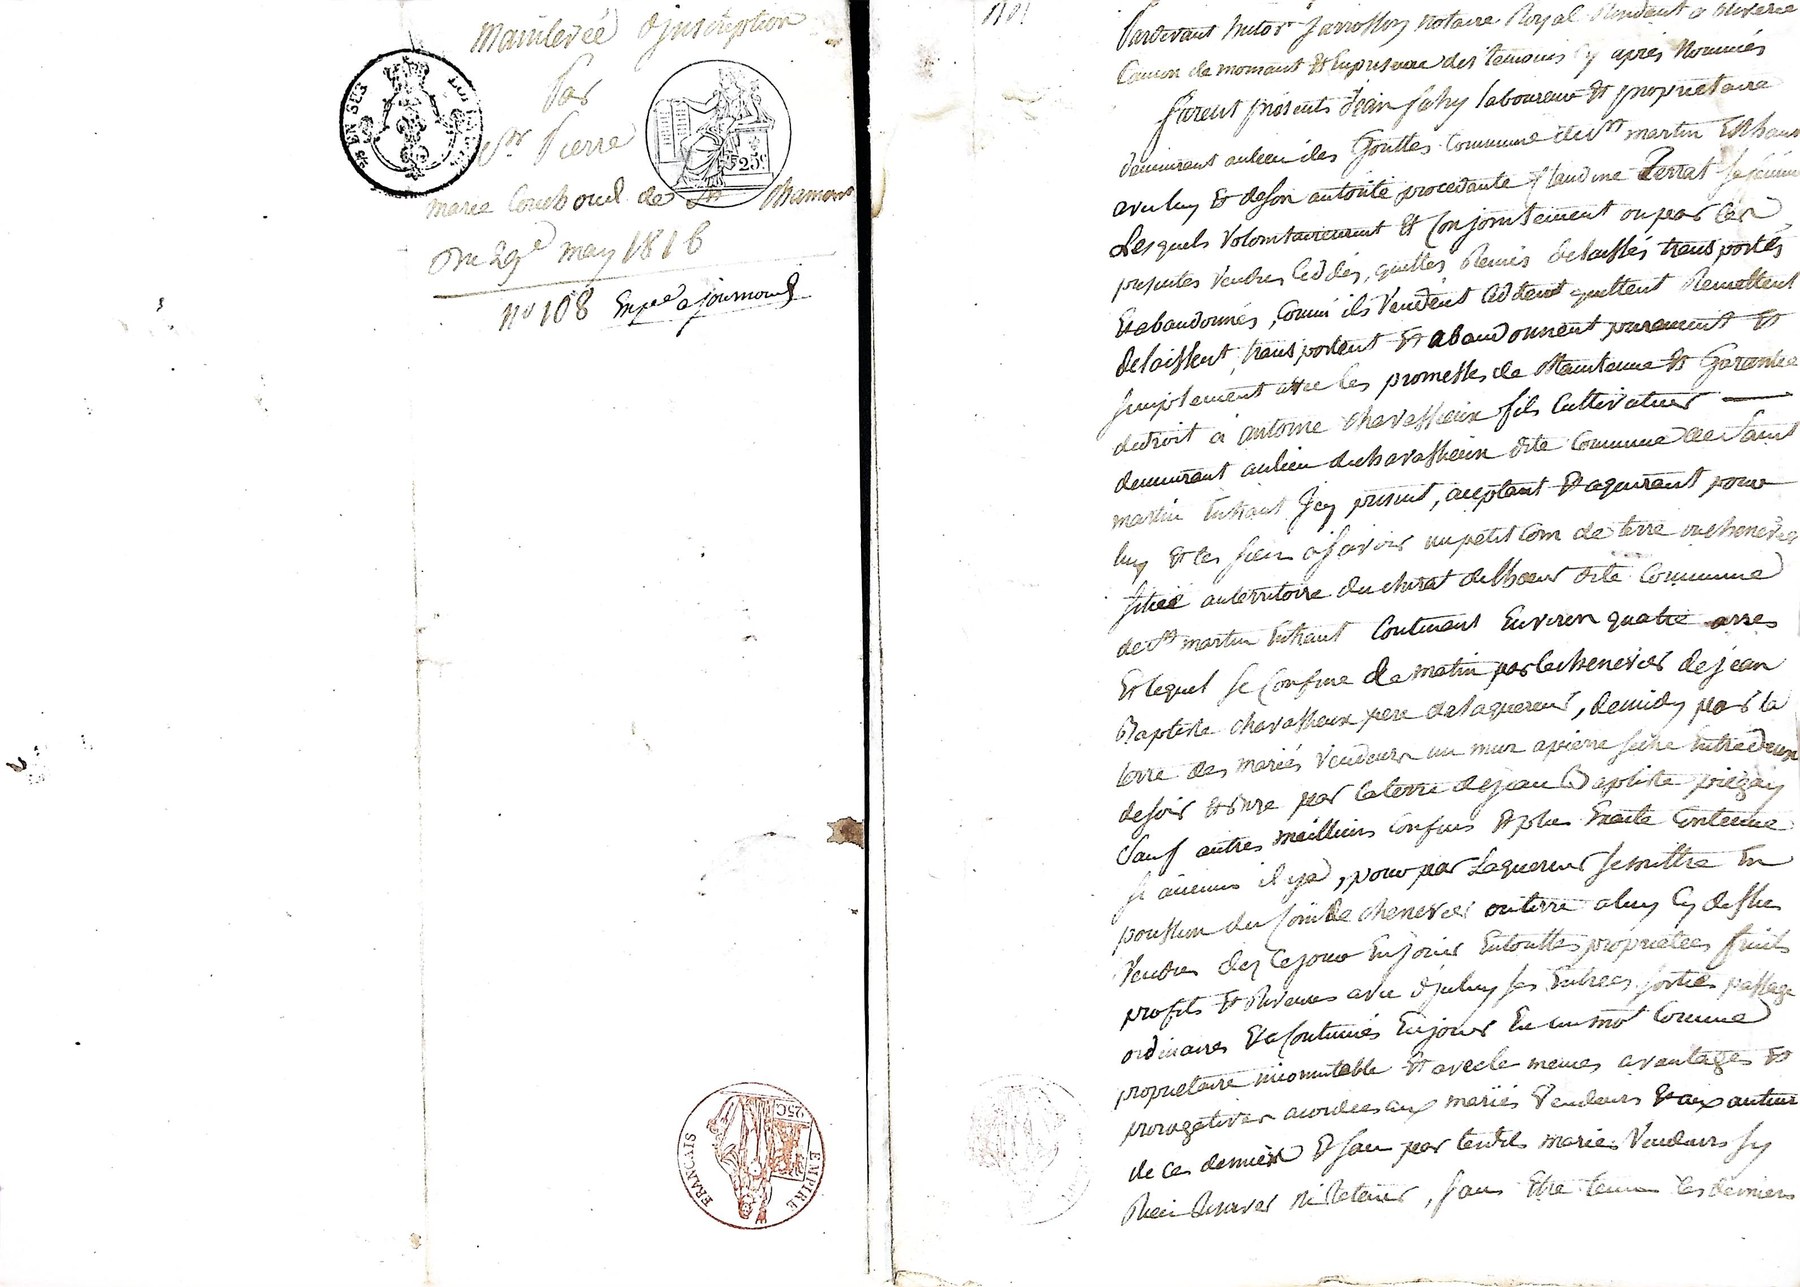 Mainlevée d'inscription
Par
Sr Pierre
marie Courbond de St Chamont
Du 29e may 1816
no 108
EN SUS
25c
25C
EMPIRE
FRANCAIS
Pardevant notaire Royal Residant a Riverie
Canton de mornant Et En presence des temoins Cy après Nommés
furent présents Jean fahy laboureur Et proprietaire
demeurant au lieu des Gouttes Commune de St martin En haut
avec luy Et de son autorité procedante Claudine Terrat sa femme
Lesquels volontairement Et Conjointement ou par Ces
presentes vendus Ceddés, quittés Remis delaissés transportés
Et abandonnés, Comm' ils Vendent Cedent quittent Remettent
delaissent, transportent Et abandonnent purement Et
simplement avec les promesses de Maintenue Et Garentie
de droit a antoine Chavassieux fils Cultivateur
demeurant au lieu du Chavassieux dite Commune de Saint
martin En haut Icy present, aceptant Et aquerant pour
luy Et les siens a savoir un petit Coin de terre ou chenevier
située au territoire du dite Commune
de St martin En haut Contenant Environ quatre arres
Et lequel se Confine de matin par le chenevier de jean
Baptiste Chavassieux pere de laquereur, de midy par la
terre des mariés Vendeurs un mur a pierre seche Entre deux
de soir Et bize par la terre de jean Baptiste piegay
Sauf autres meillieurs Confins Et plus Exacte Contenue
si aucuns il y a, pour par Laquereur se mettre En
possession du Coin de chenevier ou terre a luy Cy dessus
Vendus dez Ce jour En jouir En touttes proprietées fruits
profits Et Revenus avec d'juluy ses Entrées, sorties passage
ordinaires Et acoutumés En jouir En un mot Comme
proprietaire incomutable Et avec le memes avantages Et
prerogatives acordées aux mariés Vendeurs Et aux auteurs
de ces derniers Et sans par lesdits mariés Vendeurs sy
Rien Reserver Ni Retenir, sans Etre tenus les derniers